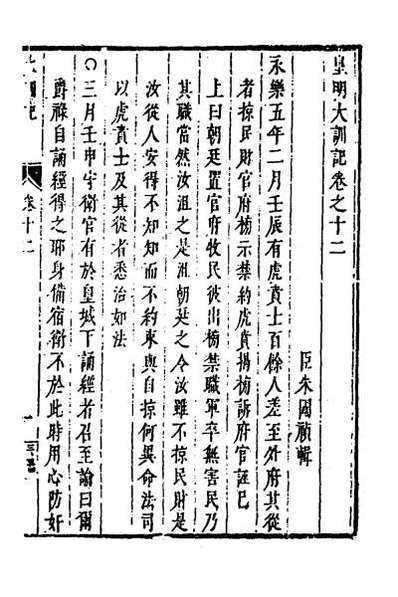 皇明大訓記卷之十二
臣朱國禎輯
永樂五年二月壬辰有虎賁士百餘人差至外府其從
者掠民財官府榜示禁約虎賁揭榜訴府官誣已
上曰朝廷置官府收民彼出榜禁職軍卒無害民乃
其職當然汝沮之是沮朝廷之令汝雖不掠民財是
汝從人安得不知知而不約束與自掠何異命法司
以虎賁士及其從者悉治如法
○三月壬申守衛官有於皇城下誦經者召至諭曰爾
爵祿自誦經得之耶身備宿衛不於此時用心防奸
卷十二